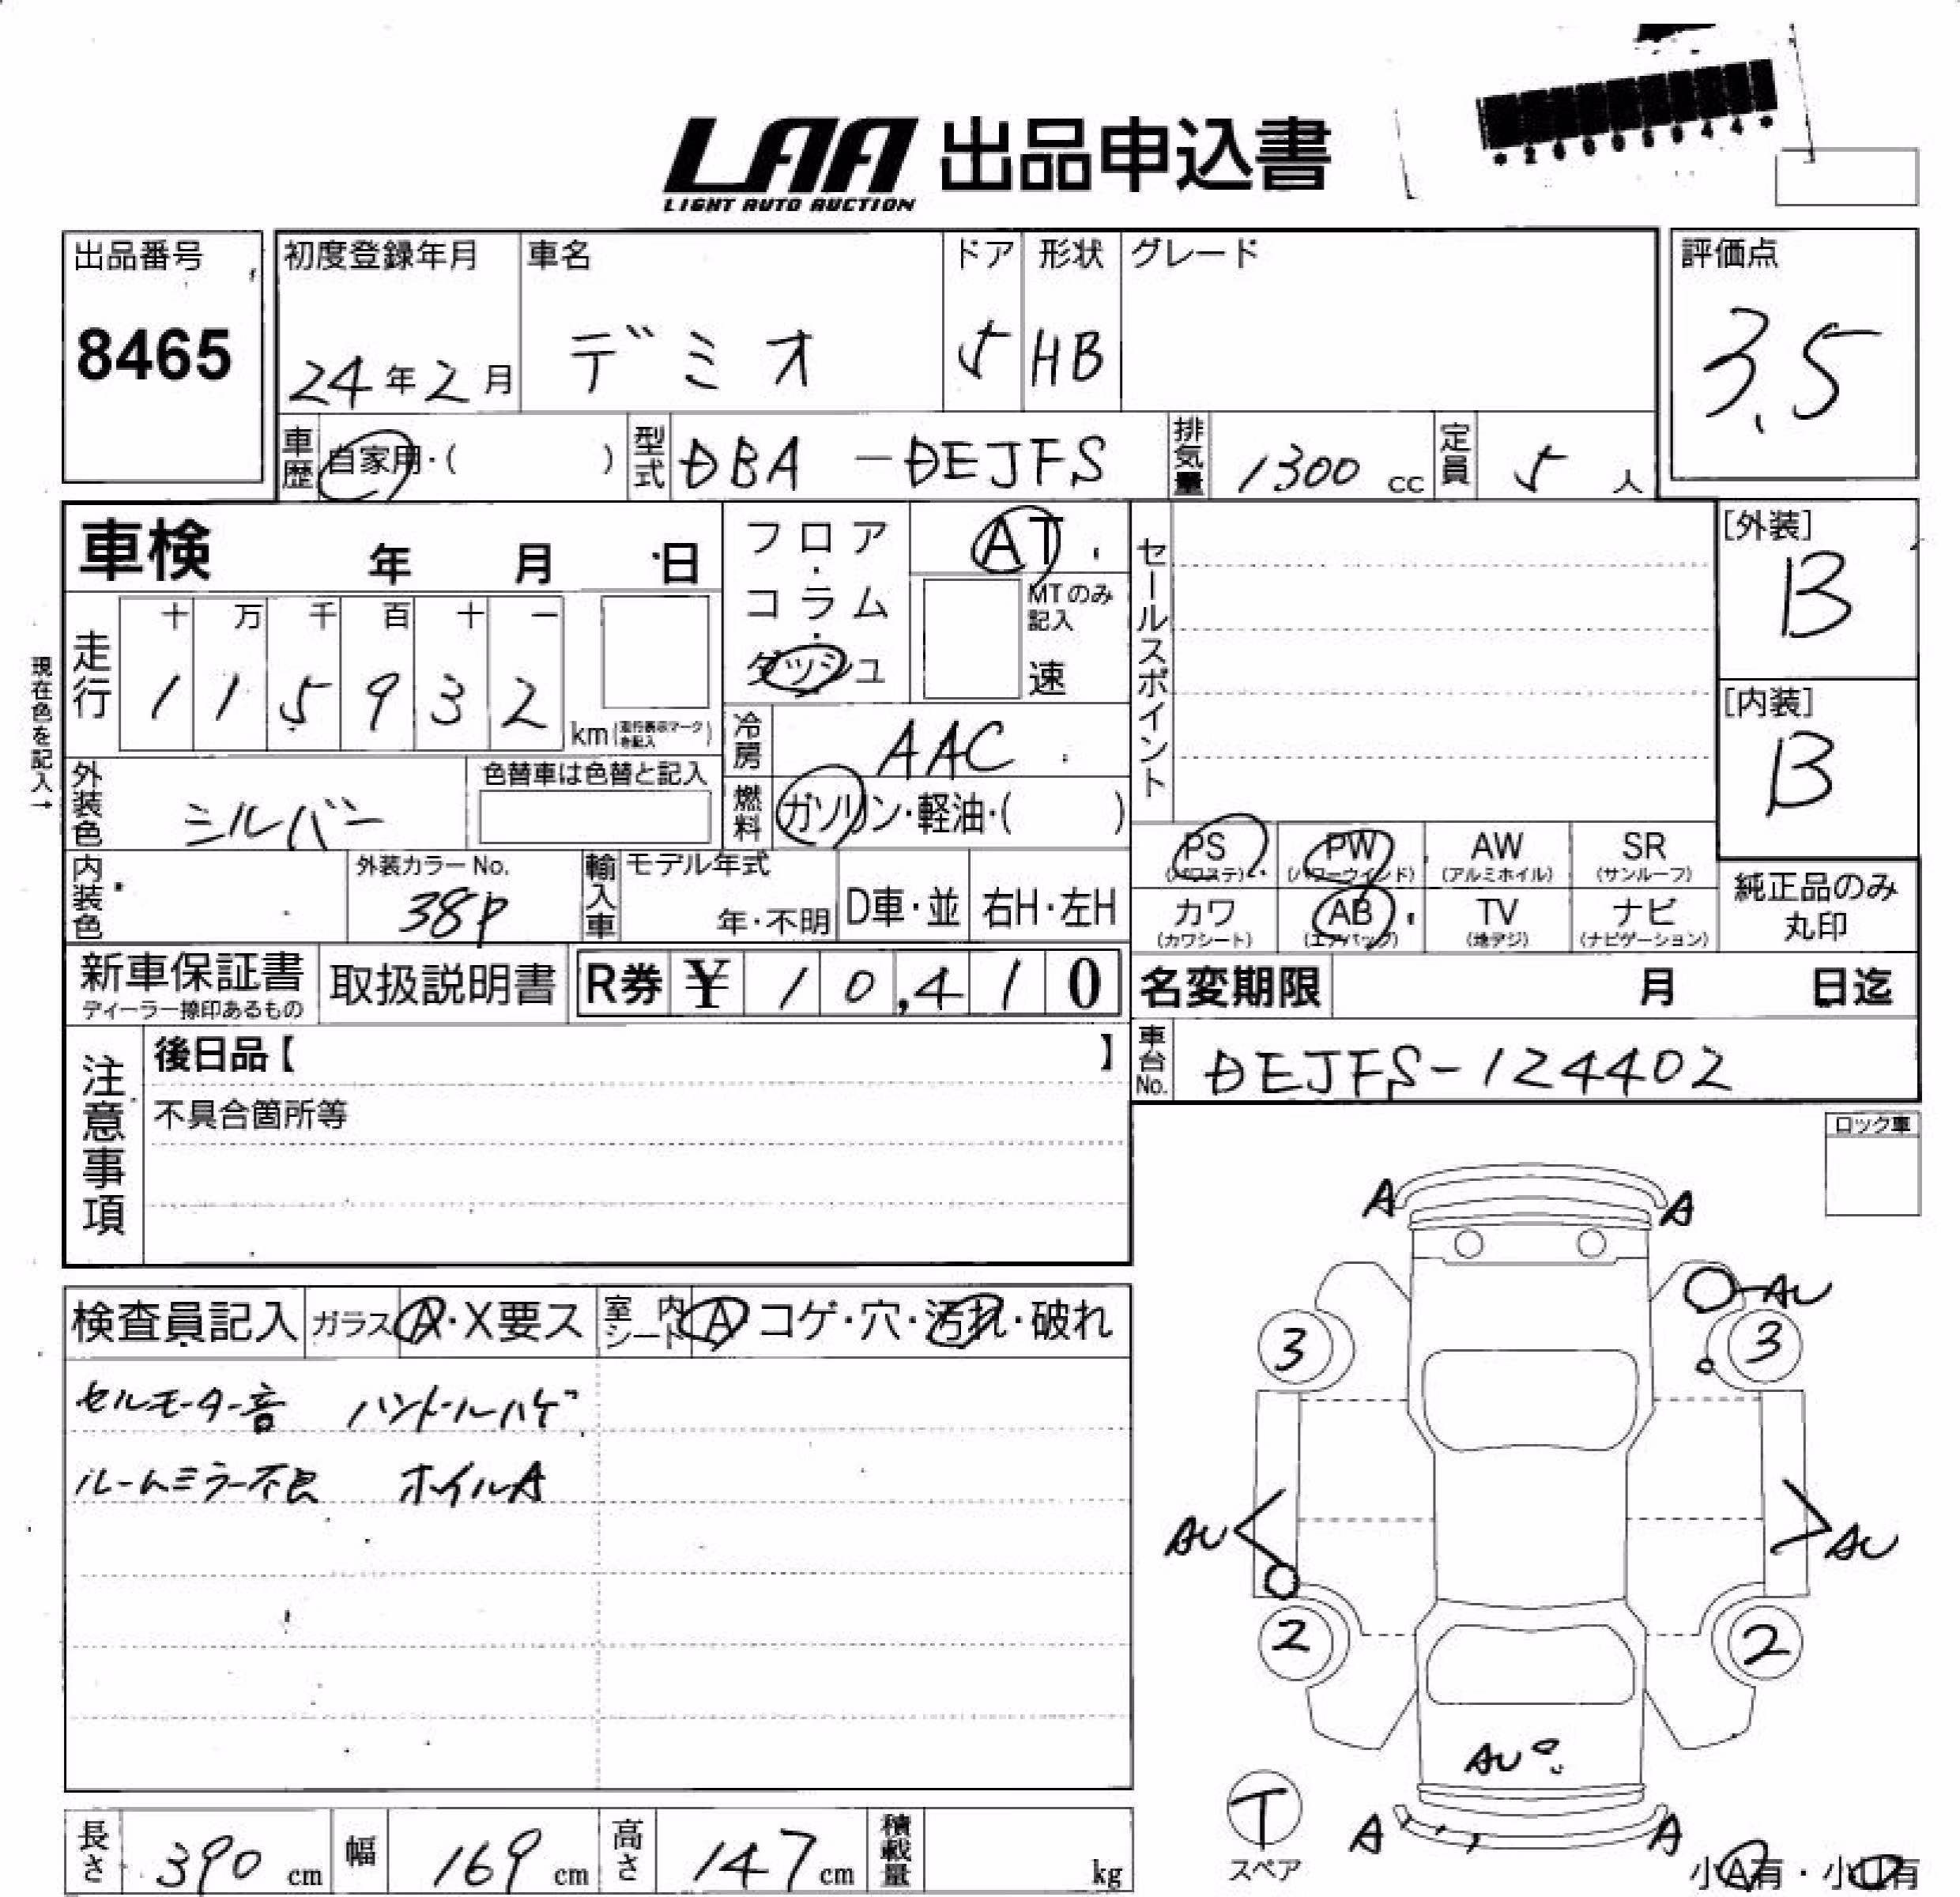 LAA 出品申込書
LIGHT AUTO AUCTION
出品番号
8465
初度登録年月
24年2月
車名
デミオ
ドア
5
形状
HB
グレード
評価点
3.5
車歴
自家用・( )
型式
DBA-DEJFS
排気量
1300 cc
定員
5 人
車検 年 月 日
現在色を記入→
走行
十 万 千 百 十 一
1 1 5 9 3 2 km
フロア・コラム・ダッシュ
AT
MTのみ記入
速
冷房
AAC
燃料
ガソリン・軽油・( )
セールスポイント
[外装]
B
[内装]
B
外装色
シルバー
色替車は色替と記入
内装色
外装カラーNo.
38P
輸入車
モデル年式
年・不明
D車・並
右H・左H
PS
(パワステ)
PW
(パワーウインド)
AW
(アルミホイル)
SR
(サンルーフ)
カワ
(カワシート)
AB
(エアバック)
TV
(地デジ)
ナビ
(ナビゲーション)
純正品のみ
丸印
新車保証書
ディーラー捺印あるもの
取扱説明書
R券 ¥ 10,410
名変期限 月 日迄
車台No.
DEJFS-124402
注意事項
後日品【 】
不具合箇所等
ロック車
検査員記入
ガラス A・X要ス
室内シート A コゲ・穴・汚れ・破れ
セルモーター音 ハンドルハゲ
ルームミラー不良 ホイルA
A A
AU
3 3
AU AU
2 2
AU
T
スペア
A A
小A有・小U有
長さ
390 cm
幅
169 cm
高さ
147 cm
積載量
kg